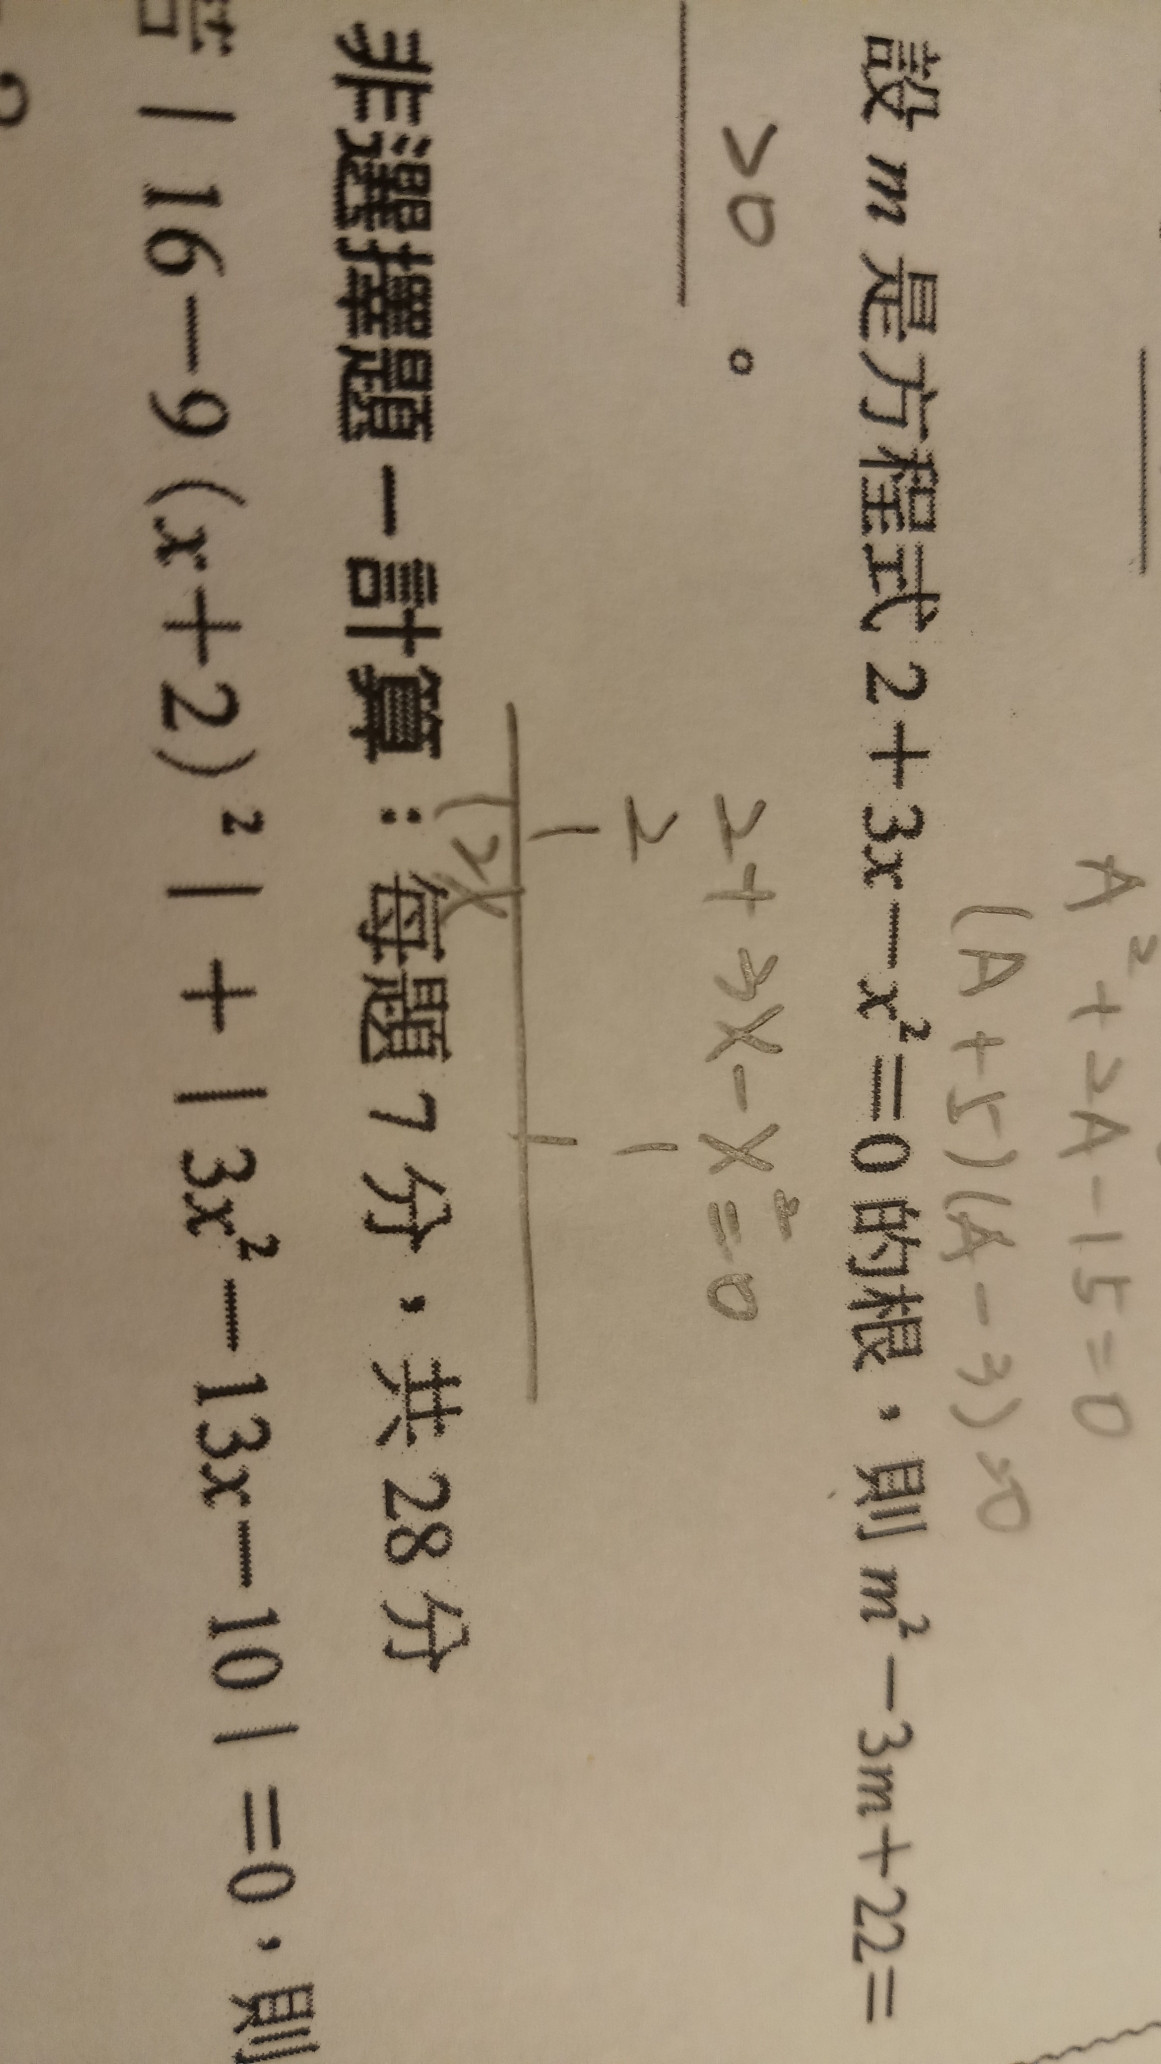 A²+2A-15=0
(A+5)(A-3)=0
設 m 是方程式 2+3x-x²=0 的根，則 m²-3m+22=
>0 。
2+3x-x²=0
2 1
1 1
(2x
非選擇題－計算：每題7分，共28分
若｜16-9(x+2)²｜+｜3x²-13x-10｜=0，則